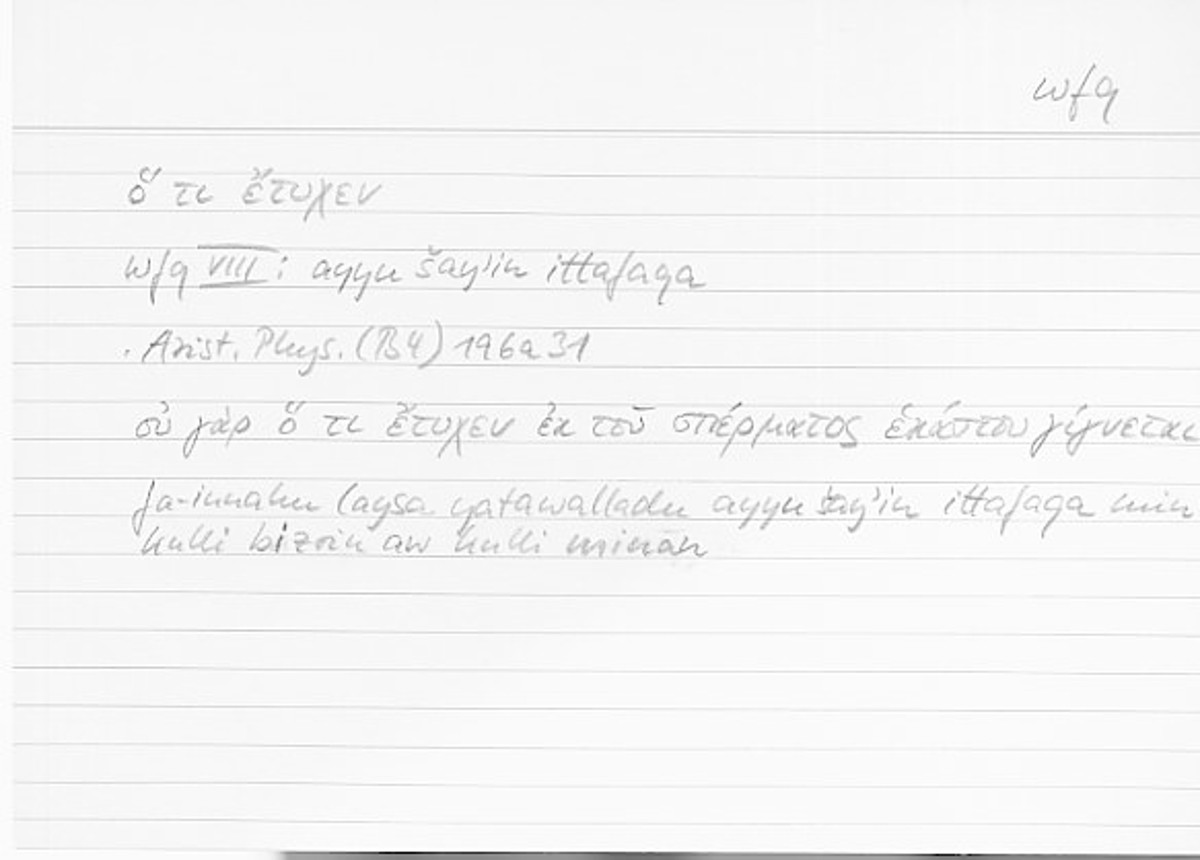 wfq
ὅ τι ἔτυχεν
wfq VIII: ayyu šay'in ittafaqa
. Arist. Phys. (B4) 196a31
οὐ γὰρ ὅ τι ἔτυχεν ἐκ τοῦ σπέρματος ἑκάστου γίγνεται
fa-innahu laysa yatawalladu ayyu šay'in ittafaqa min
kulli bizrin aw kulli